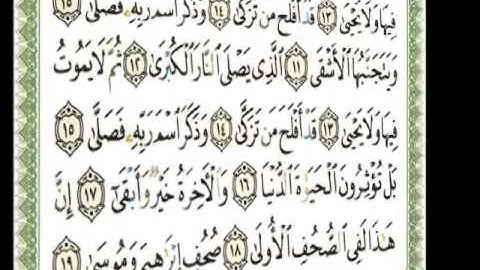 فِيهَا وَلَا يَحْيَىٰ ١٣ قَدْ أَفْلَحَ مَن تَزَكَّىٰ ١٤ وَذَكَرَ ٱسْمَ رَبِّهِۦ فَصَلَّىٰ ١٥
وَيَتَجَنَّبُهَا ٱلْأَشْقَى ١١ ٱلَّذِى يَصْلَى ٱلنَّارَ ٱلْكُبْرَىٰ ١٢ ثُمَّ لَا يَمُوتُ
فِيهَا وَلَا يَحْيَىٰ ١٣ قَدْ أَفْلَحَ مَن تَزَكَّىٰ ١٤ وَذَكَرَ ٱسْمَ رَبِّهِۦ فَصَلَّىٰ ١٥
بَلْ تُؤْثِرُونَ ٱلْحَيَوٰةَ ٱلدُّنْيَا ١٦ وَٱلْأٓخِرَةُ خَيْرٌ وَأَبْقَىٰٓ ١٧ إِنَّ
هَٰذَا لَفِى ٱلصُّحُفِ ٱلْأُولَىٰ ١٨ صُحُفِ إِبْرَٰهِيمَ وَمُوسَىٰ ١٩